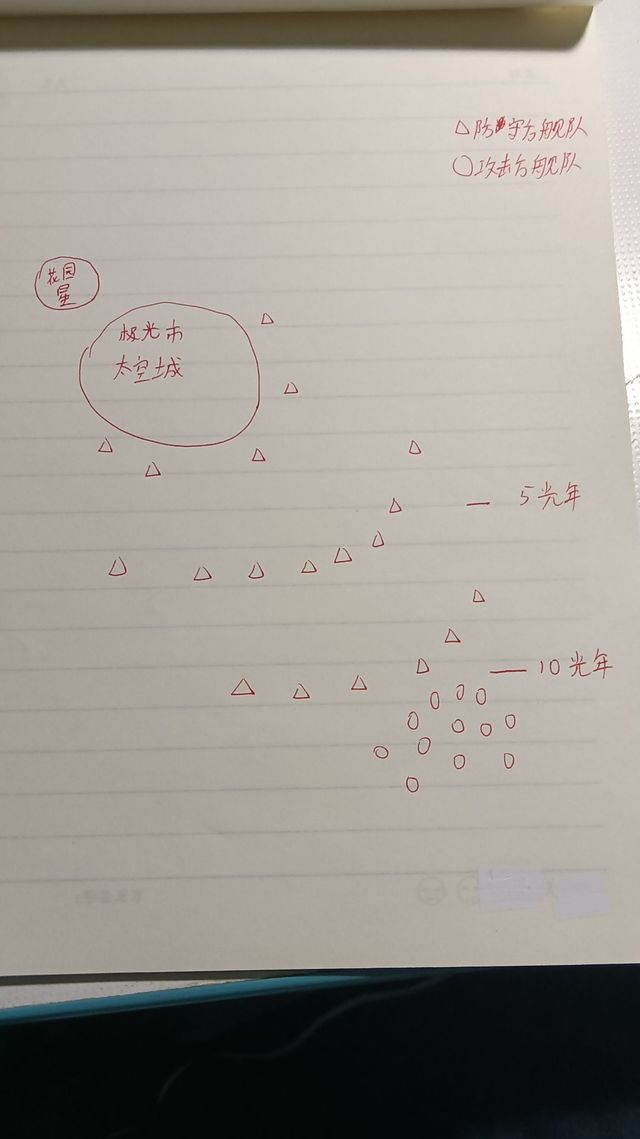 △防守方舰队
○攻击方舰队
花园
星
极光市
太空城
— 5光年
— 10光年